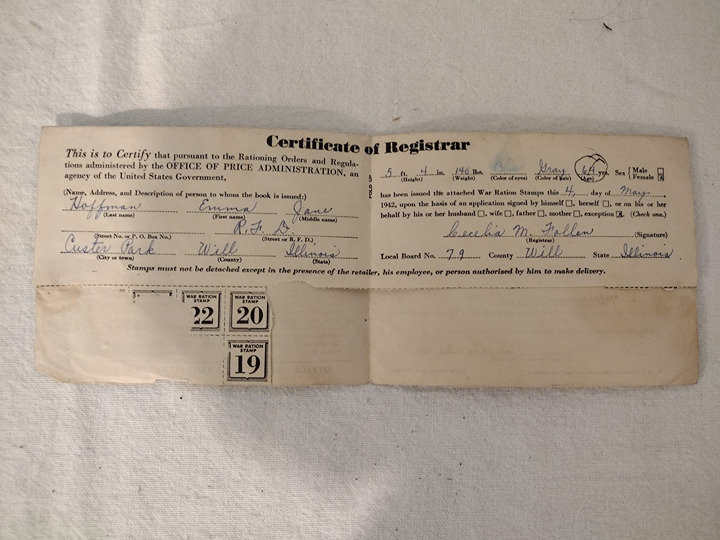 Certificate of Registrar
This is to Certify that pursuant to the Rationing Orders and Regula-
tions administered by the OFFICE OF PRICE ADMINISTRATION, an
agency of the United States Government,
(Name, Address, and Description of person to whom the book is issued:)
Hoffman Emma Jane
(Last name) (First name) (Middle name)
R.F.D.
(Street No. or P. O. Box No.) (Street or R. F. D.)
Custer Park Will Illinois
(City or town) (County) (State)
5 ft. 4 in. 140 lbs. Gray 64 yrs. Sex Male
(Height) (Weight) (Color of eyes) (Color of hair) (Age) Female
has been issued the attached War Ration Stamps this 4 day of May
1942, upon the basis of an application signed by himself □, herself □, or on his or her
behalf by his or her husband □, wife □, father □, mother □, exception ☒. (Check one.)
Cecelia M. Follen (Signature)
(Registrar)
Local Board No. 79 County Will State Illinois
Stamps must not be detached except in the presence of the retailer, his employee, or person authorized by him to make delivery.
WAR RATION STAMP 22
WAR RATION STAMP 20
WAR RATION STAMP 19